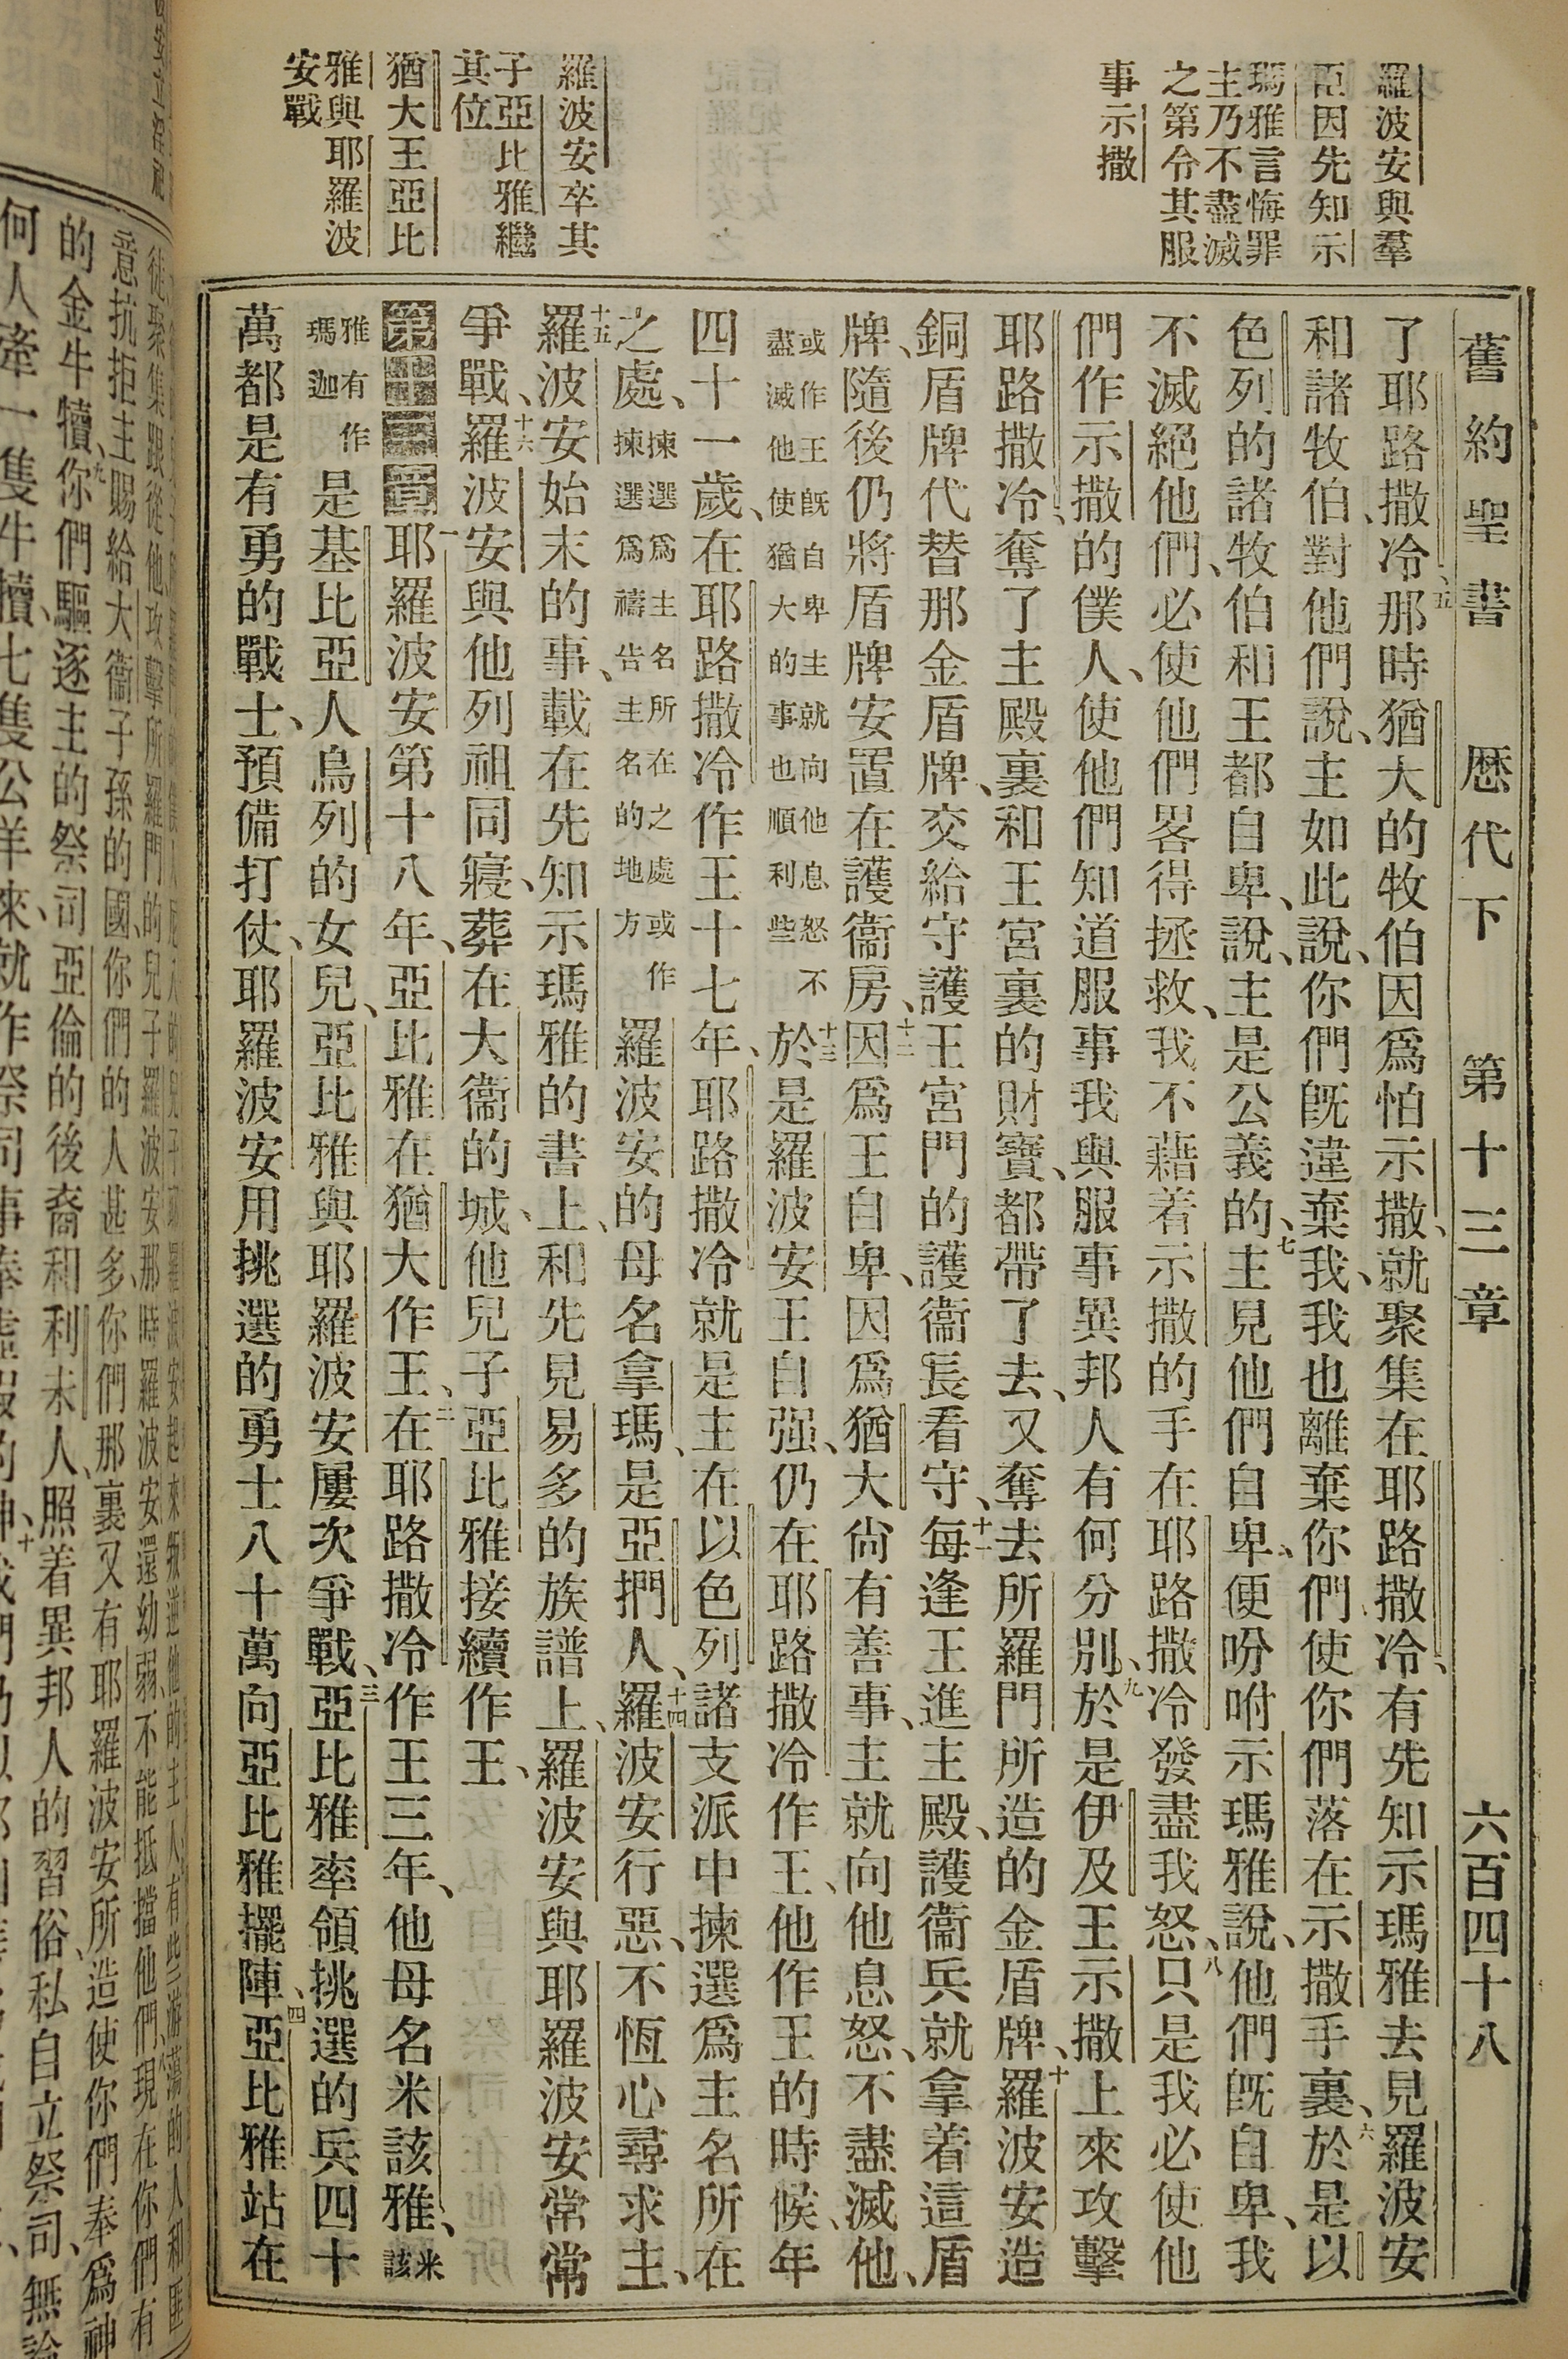 舊約聖書 歷代下 第十三章 六百四十八
羅波安與羣
臣因先知示
瑪雅言悔罪
主乃不盡滅
之第令其服
事示撒
羅波安卒其
子亞比雅繼
其位
猶大王亞比
雅與耶羅波
安戰
了耶路撒冷、五那時猶大的牧伯因爲怕示撒、就聚集在耶路撒冷、有先知示瑪雅去見羅波安
和諸牧伯、對他們說、主如此說、你們旣違棄我、我也離棄你們使你們落在示撒手裏、六於是以
色列的諸牧伯和王都自卑、說、主是公義的、七主見他們自卑、便吩咐示瑪雅說、他們旣自卑、我
不滅絕他們、必使他們畧得拯救、我不藉着示撒的手在耶路撒冷發盡我怒、八只是我必使他
們作示撒的僕人、使他們知道服事我與服事異邦人有何分別、九於是伊及王示撒上來攻擊
耶路撒冷、奪了主殿裏和王宮裏的財寶、都帶了去、又奪去所羅門所造的金盾牌、十羅波安造
銅盾牌代替那金盾牌、交給守護王宮門的護衞長看守、十一每逢王進主殿、護衞兵就拿着這盾
牌、隨後仍將盾牌安置在護衞房、十二因爲王自卑、因爲猶大尙有善事、主就向他息怒、不盡滅他、
或作王旣自卑主就向他息怒不
盡滅他使猶大的事也順利些
十三於是羅波安王自强、仍在耶路撒冷作王、他作王的時候、年
四十一歲、在耶路撒冷作王十七年、耶路撒冷就是主在以色列諸支派中揀選爲主名所在
之處、
揀選爲主名所在之處或作
揀選爲禱告主名的地方
羅波安的母名拿瑪、是亞捫人、十四羅波安行惡、不恆心尋求主、
十五羅波安始末的事、載在先知示瑪雅的書上、和先見易多的族譜上、羅波安與耶羅波安常常
爭戰、十六羅波安與他列祖同寢、葬在大衞的城、他兒子亞比雅接續作王、
第十三章 一耶羅波安第十八年、亞比雅在猶大作王、二在耶路撒冷作王三年、他母名米該雅、
米該
雅有作
瑪迦
是基比亞人烏列的女兒、亞比雅與耶羅波安屢次爭戰、三亞比雅率領挑選的兵四十
萬都是有勇的戰士、預備打仗、耶羅波安用挑選的勇士八十萬向亞比雅擺陣、四亞比雅站在
意抗拒主賜給大衞子孫的國、你們的人甚多、你們那裏又有耶羅波安所造使你們奉爲神
的金牛犢、九你們驅逐主的祭司亞倫的後裔和利未人、照着異邦人的習俗私自立祭司、無論